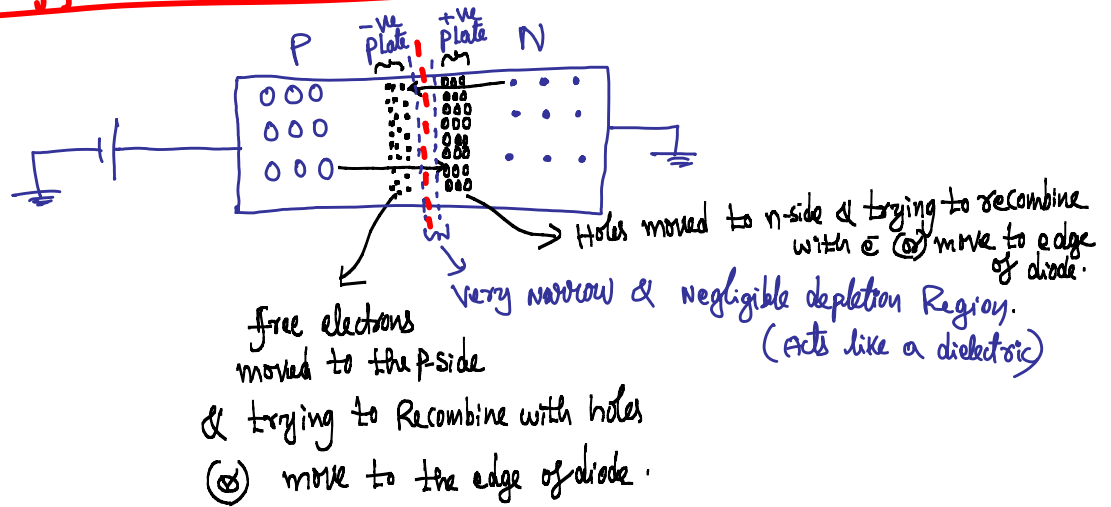 P
-ve
plate
+ve
plate
N
Holes moved to n-side & trying to recombine
with e̅ (or) move to edge
of diode.
Very narrow & Negligible depletion Region.
(Acts like a dielectric)
free electrons
moved to the p-side
& trying to Recombine with holes
(or) move to the edge of diode.